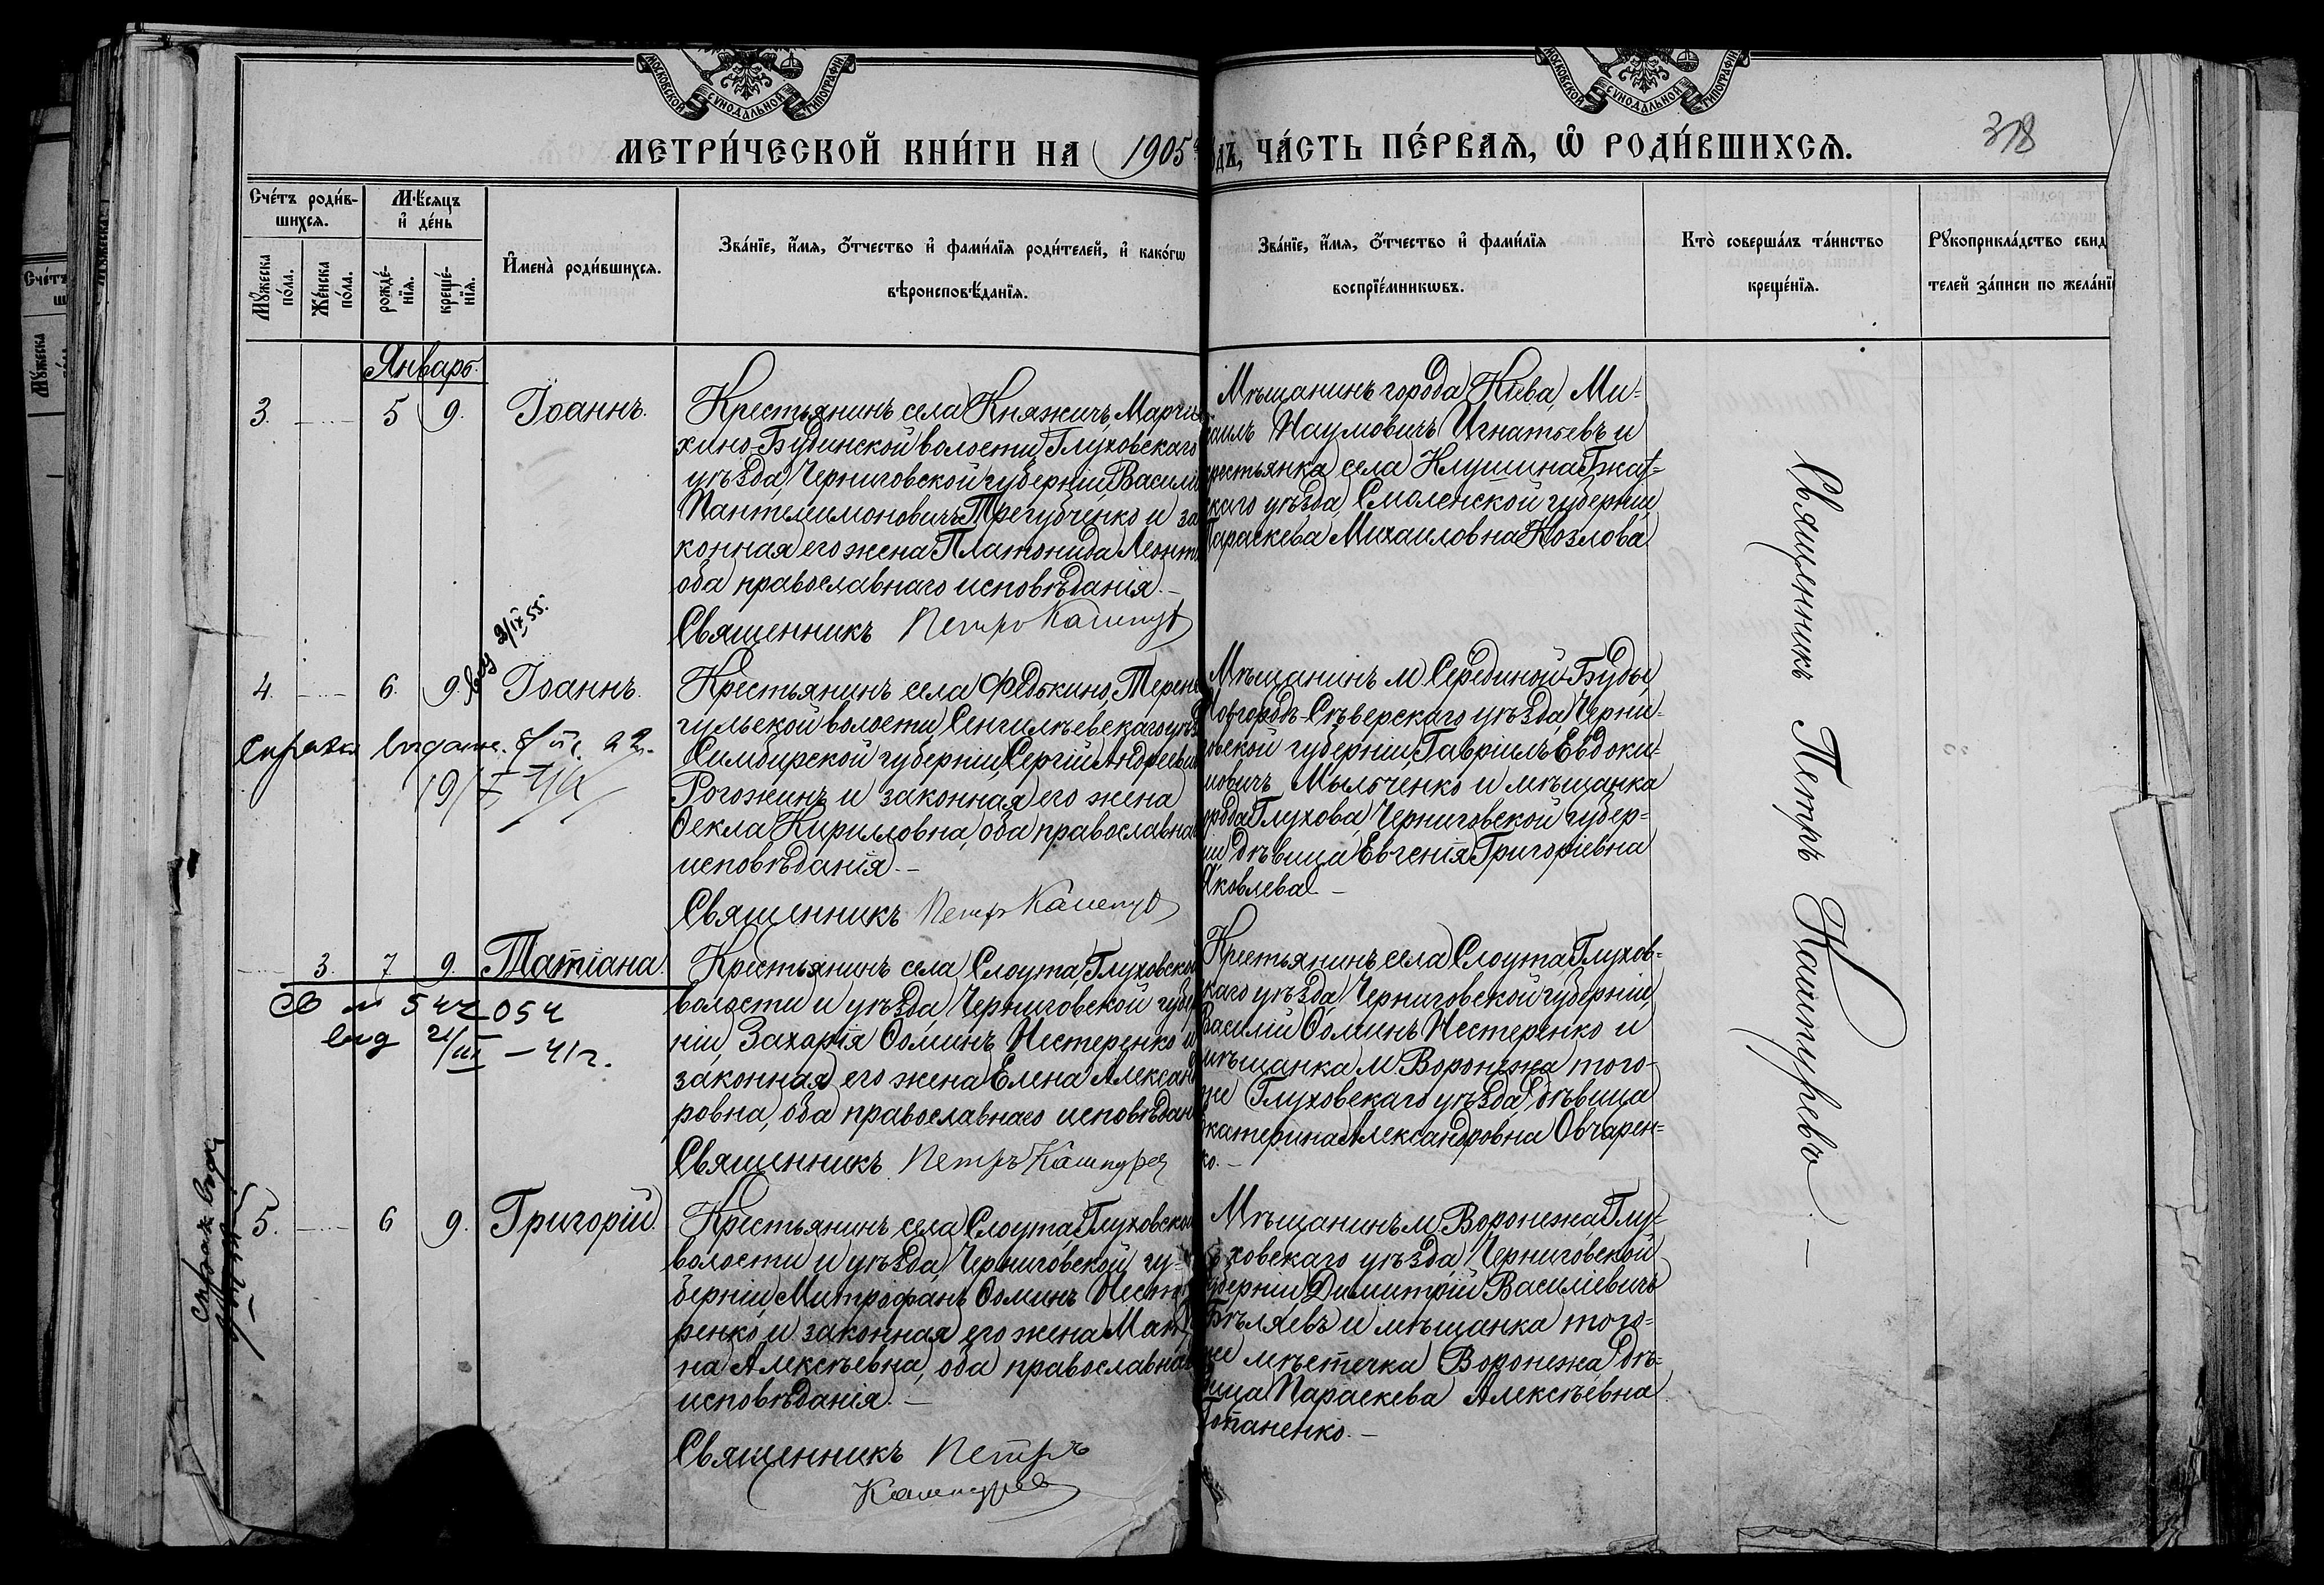 МОСКОВСКОЙ СѴНОДАЛЬНОЙ ТИПОГРАФІИ
МОСКОВСКОЙ СѴНОДАЛЬНОЙ ТИПОГРАФІИ
МЕТРИ́ЧЕСКОЙ КНИ́ГИ НА 1905 ДЪ, ЧА́СТЬ ПЕ́РВАѦ, Ѡ҆ РОДИ́ВШИХСѦ.
318
Сче́тъ роди́в-
шихсѧ.
Мѣ́сѧцъ
и҆ де́нь
Мꙋ́жеска
по́ла.
Же́нска
по́ла.
рожде́-
нїѧ.
креще́-
нїѧ.
И҆мена̀ роди́вшихсѧ.
Зва́нїе, и҆́мѧ, ѻ҆́тчество и҆ фами́лїѧ роди́телей, и҆ како́гѡ
вѣроисповѣ́данїѧ.
Зва́нїе, и҆́мѧ, ѻ҆́тчество и҆ фами́лїѧ
воспрїе́мникѡвъ.
Кто̀ соверша́лъ та́инство
креще́нїѧ.
Рꙋкоприкла́дство свид
телей за́писи по жела́нї
Январь.
3. 5 9. Іоаннъ.
Крестьянинъ села Княжичъ, Марчи
хино-Будинской волости, Глуховскаго
уѣзда, Черниговской губерніи Васили
Пантелимоновичъ Трегубченко и за
конная его жена Платонида Леонт
оба православнаго исповѣданія.-
Священникъ Петръ Кашпур
Мѣщанинъ города Кіева, Ми-
хаилъ Наумовичъ Игнатьевъ и
крестьянка села Клушина Гжат-
скаго уѣзда, Смоленской губерніи,
Параскева Михаиловна Козлова
4. 6. 9. Іоаннъ.
выд 2/IX 55.
Крестьянинъ села Федькино, Терень
гульской волости, Сенгилѣевскаго уѣз
Симбирской губерніи, Сергій Андреевич
Рогожинъ и законная его жена
Ѳекла Кирилловна, оба православна
исповѣданія.-
Священникъ Петръ Кашпур
Мѣщанинъ м. Середной-Буды,
Новгородъ-Сѣверскаго уѣзда, Черни-
говской губерніи, Гавріилъ Евдоки-
мовичъ Мыльченко и мѣщанка
города Глухова, Черниговской губер-
ніи дѣвица Евгенія Григоріевна
Яковлева.-
3. 7 9. Татіана.
Св № 542054
выд 21/III - 41 г.
Крестьянинъ села Слоута, Глуховской
волости и уѣзда, Черниговской губер
ніи, Захарія Ѳоминъ Нестеренко и
законная его жена Елена Алексан
ровна, оба православнаго исповѣдан
Священникъ Петръ Кашпурев
Крестьянинъ села Слоута, Глухов-
скаго уѣзда, Черниговской губерніи,
Василій Ѳоминъ Нестеренко и
мѣщанка м. Воронежа того-
же Глуховскаго уѣзда, дѣвица
Екатерина Александровна Овчарен-
ко.-
5. 6 9. Григорій.
Крестьянинъ села Слоута, Глуховской
волости и уѣзда, Черниговской гу-
берніи, Митрофанъ Ѳоминъ Несте
ренко и законная его жена Мат
на Алексѣевна, оба православна
исповѣданія.-
Священникъ Петръ
Кашпурев
Мѣщанинъ м. Воронежа, Глу-
ховскаго уѣзда, Черниговской
губерніи Димитрій Василіевичъ
Бѣляевъ и мѣщанка того-
же мѣстечка Воронежа, дѣ-
вица Параскева Алексѣевна
Потаненко.-
Священникъ Петръ Кашпуревъ.-